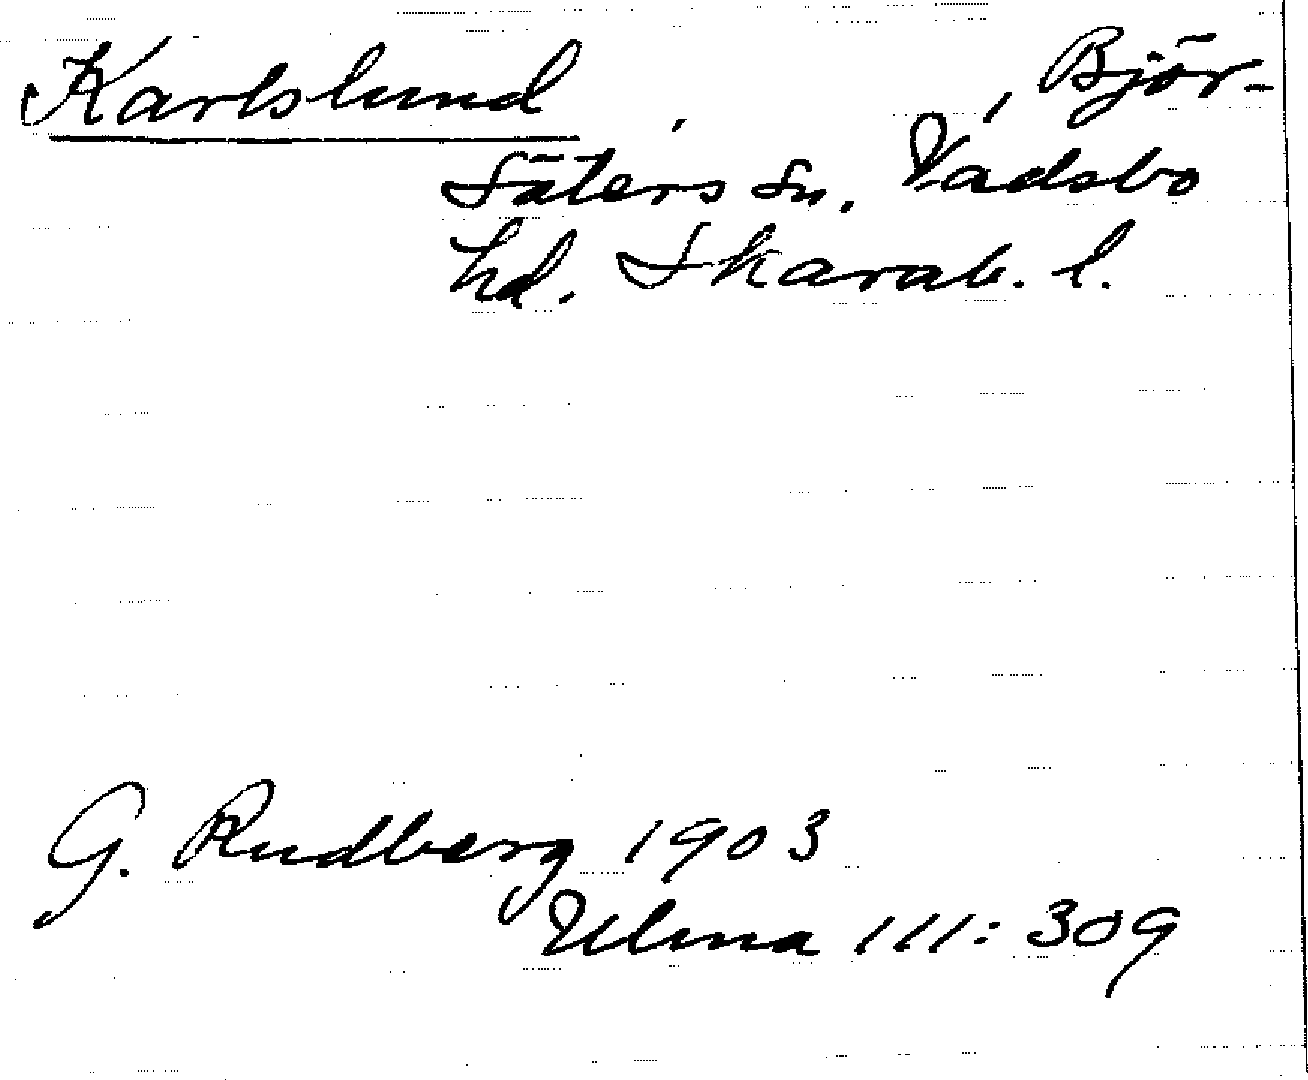 Karlslund , , Björ-
säters sn. Vadsbo
hd. Skarab. l.
G. Rudberg 1903
Ulma 111: 309